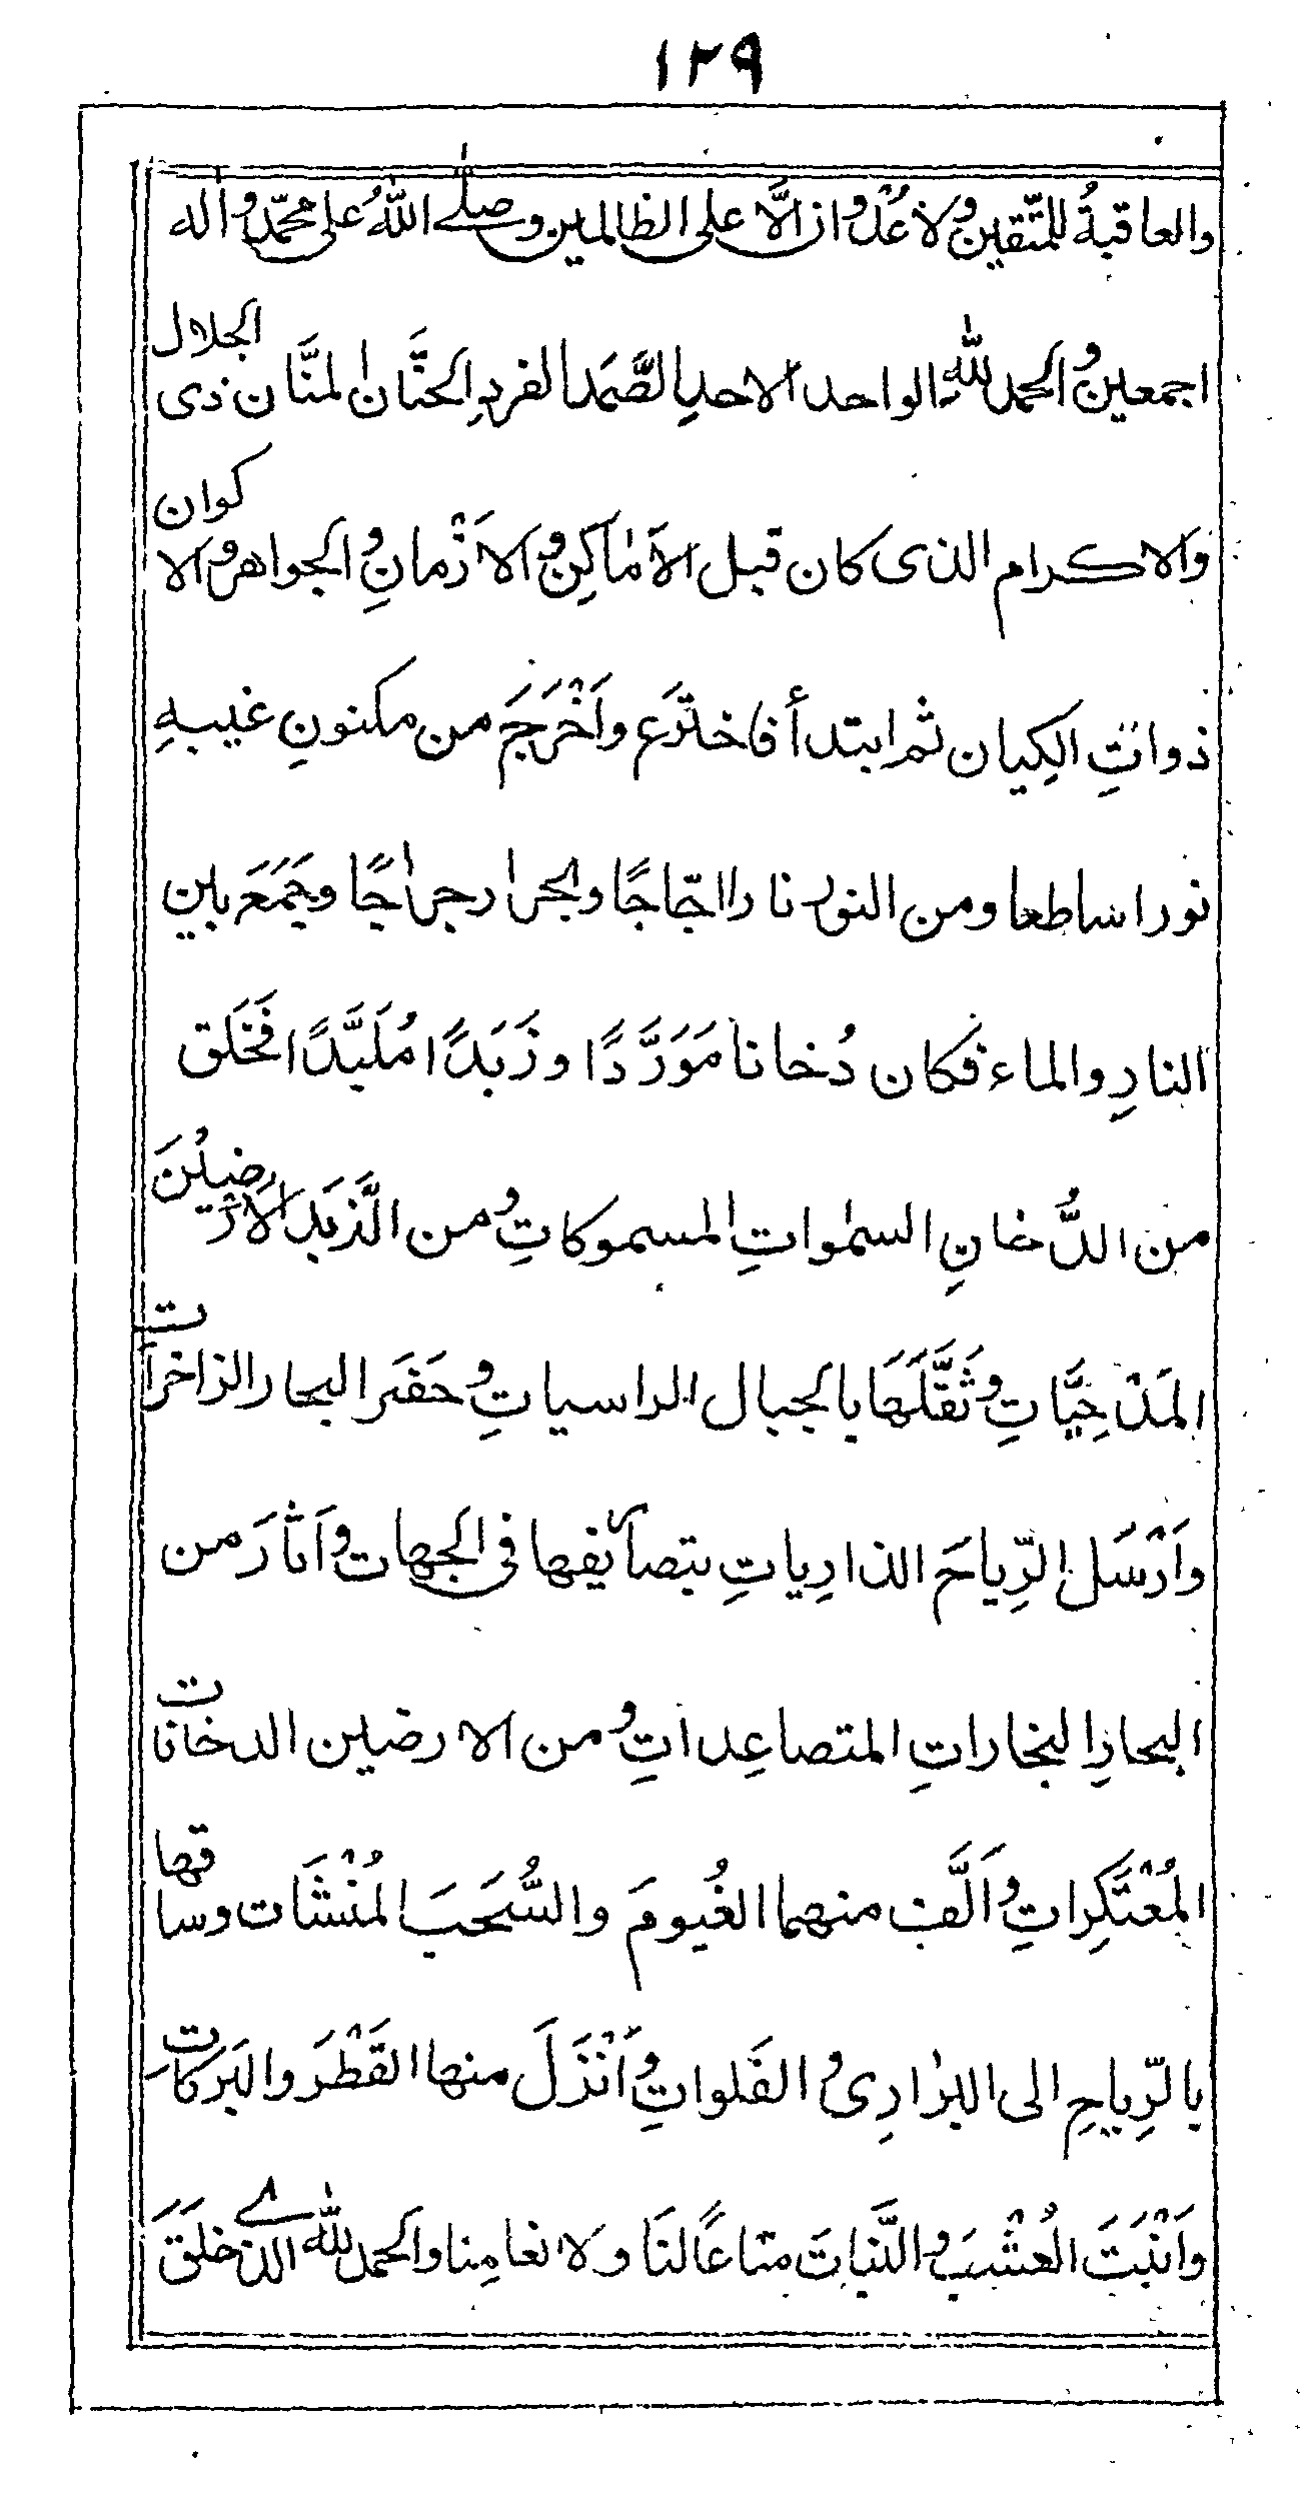 ١٢٩
والعاقبةُ للمتّقين ولا عُدْوان الَّا على الظالمين وصلے اللهُ على محمّد واٰله
اجمعين والحمد للهِ الواحد الاحدِ الصَّمَد الفردِ الحنَّانِ المنَّان ذى الجلال
والاكرام الذى كان قبل الاَمٰاكِنِ والاَزْمانِ والجواهر والاكوان
ذواتِ الكِيان ثم ابتدأ فاخترَع واَخْرَجَ من مكنونِ غيبهِ
نورا ساطعا ومن النور نارا اجّاجًا وبحرا رجراجًا وجَمَعَ بين
النارِ والماء فكان دُخانا مَوَرَّدًا وزَبَدًا مُلَبَّدًا فَخَلَق
من الدُّخانِ السمٰواتِ المسموكاتِ ومن الزَّبَد الاَرَضِيْنَ
المَدْحِيَّاتِ وثَقَّلَهَا بالجبال الراسياتِ وحَفَر البحار الزاخرات
واَرْسَل الرِّياحَ الذارِياتِ بتصاريفها فى الجهات واَثارَ من
البحارِ البخاراتِ المتصاعِداتِ ومن الارضين الدخانات
المُعْتَكِراتِ واَلَّف منهما الغُيومَ والسُّحَبَ المُنْشَات وساقها
بالرِّياحِ الى البرٰارِى والفَلواتِ واَنْزَلَ منها القَطْرَ والبَركات
واَنْبَتَ العُشْبَ والنَّباتَ متاعًا لنَا ولانعامِنا والحمد للهِ الذے خلَقَ